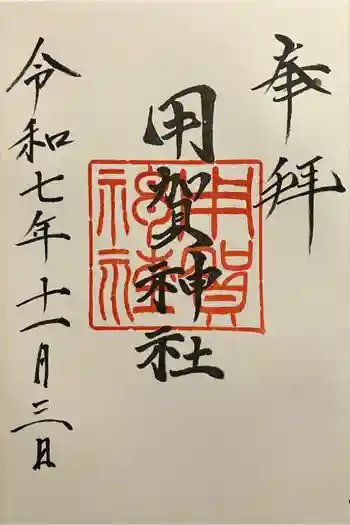 奉拝
用賀神社
用賀
神社
令和七年十一月三日